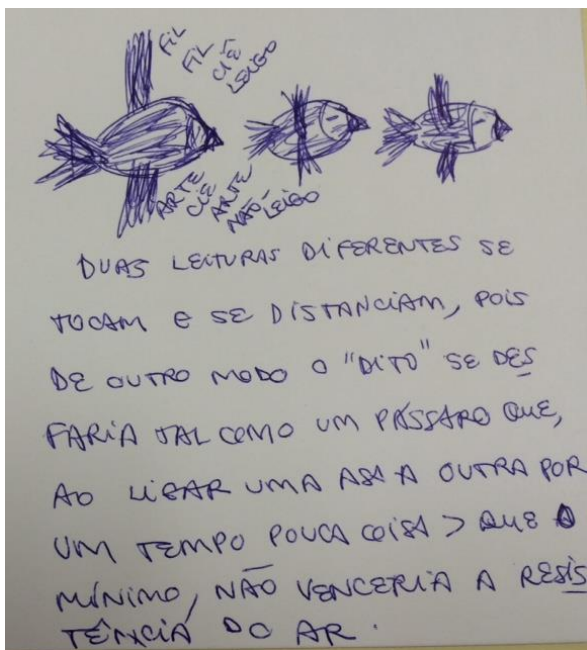 FIL
FIL
CIÊ
LEIGO
ARTE
CIÊ
ARTE
NÃO LEIGO
DUAS LEITURAS DIFERENTES SE
TOCAM E SE DISTANCIAM, POIS
DE OUTRO MODO O "DITO" SE DES
FARIA TAL COMO UM PÁSSARO QUE,
AO LIGAR UMA ASA A OUTRA POR
UM TEMPO POUCA COISA > QUE O
MÍNIMO, NÃO VENCERIA A RESIS
TÊNCIA DO AR.